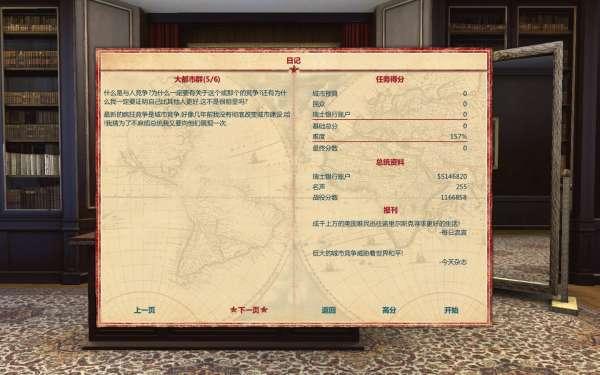 日记
大都市群(5/6)
什么是与人竞争?为什么一定要有关于这个或那个的竞争?还有为什
么我一定要证明自己比其他人更好.这不是很明显吗?
最新的疯狂竞争是城市竞争.好像几年前我没有彻底改变城市建设.哈
!我猜为了不麻烦总统我又要向他们展现一次.
任务得分
城市预算 0
民众 0
瑞士银行账户 0
基础总分 0
难度 157%
最终分数 0
总统资料
瑞士银行账户 $5146820
名声 255
战役分数 1166858
报刊
成千上万的美国难民逃往诺里尔斯克寻求更好的生活!
-每日流言
巨大的城市竞争威胁着世界和平!
-今天杂志
上一页
下一页
返回
高分
开始